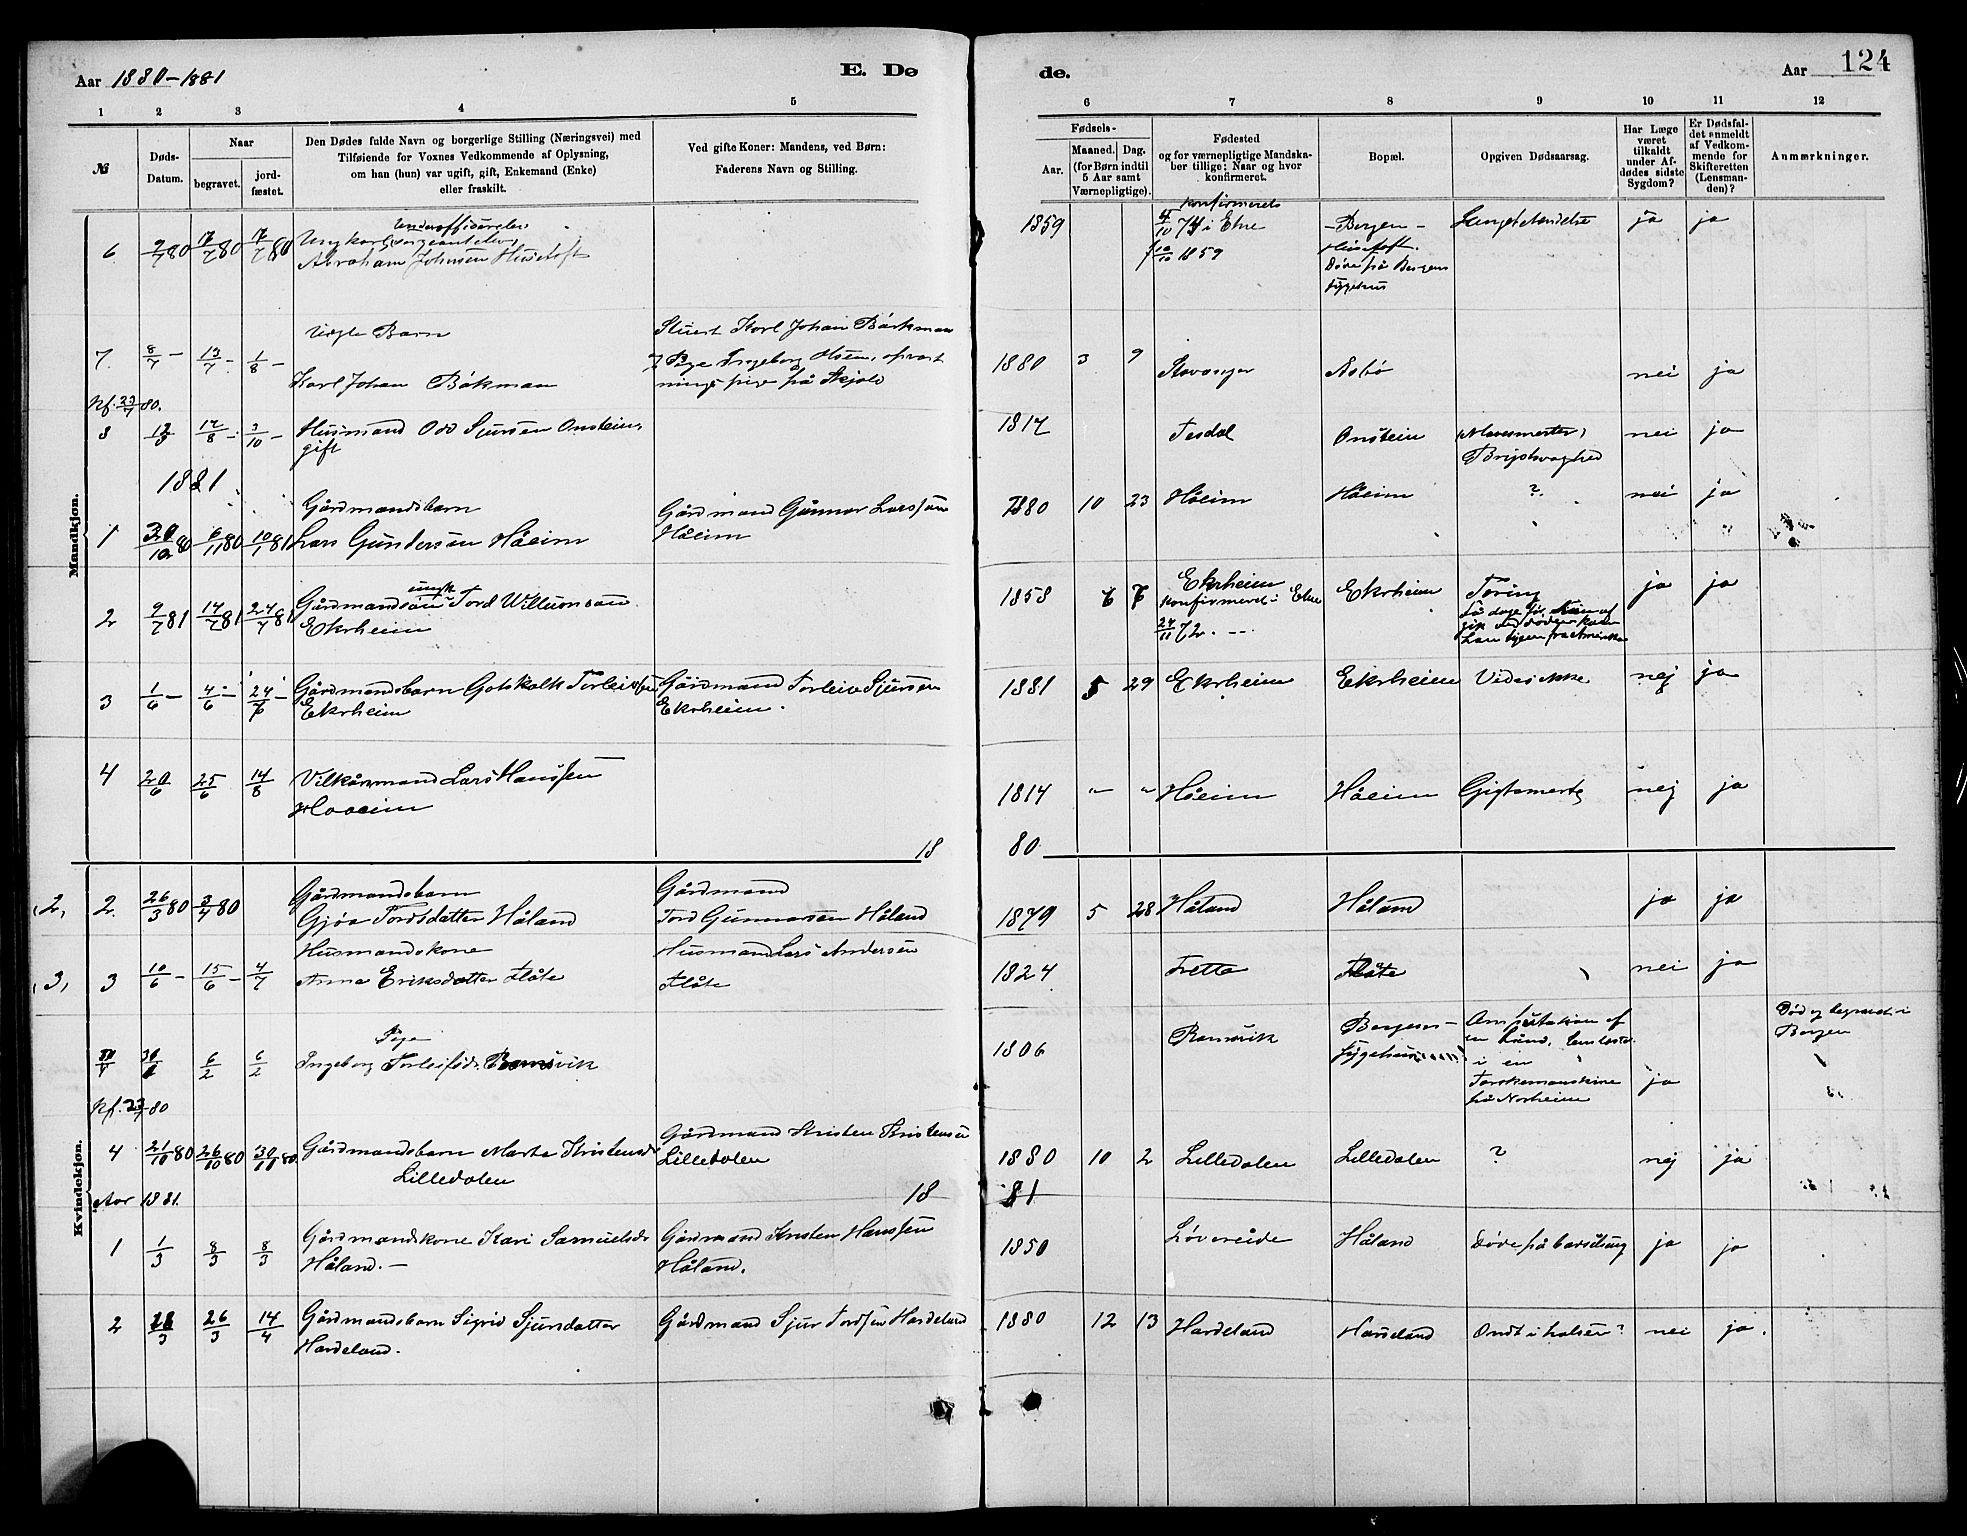 Aar 1880-1881
E. Dø
de.
Aar
124
1 2 3 4 5 6 7 8 9 10 11 12
№
Døds-Datum.
Naar
begravet.
jord-fæstet.
Den Dødes fulde Navn og borgerlige Stilling (Næringsvei) med
Tilføiende for Voxnes Vedkommende af Oplysning,
om han (hun) var ugift, gift, Enkemand (Enke)
eller fraskilt.
Ved gifte Koner: Mandens, ved Børn:
Faderens Navn og Stilling.
Fødsels-
Aar.
Maaned.
Dag.
(for Børn indtil
5 Aar samt
Værnepligtige).
Fødested
og for værnepligtige Mandska-
ber tillige: Naar og hvor
konfirmeret.
Bopæl.
Opgiven Dødsaarsag.
Har Læge
været
tilkaldt
under Af-
dødes sidste
Sygdom?
Er Dødsfal-
det anmeldt
af Vedkom-
mende for
Skifteretten
(Lensman-
den)?
Anmærkninger.
Mandkjøn.
6 9/7 80 17/7 80 17/7 80 Ungkarl
Abraham Johnsen Hustoft
1859 konfirmeret
i Etne
10/10 1859
Bergen
Hustoft.
Døde på Bergens
sygehus
ja ja
7. 8/7 - 13/7 - 1/8 - Uægte Barn
Karl Johan Bókman
Stuert Karl Johan Bórkman
Pige Ingeborg
på Skjold
1880 3 9 Stavanger nei ja
Kf. 23/7 80.
8 12/8 17/8 - 3/10 - Husmand Odd Sjursen Onstein,
gift
1817 Tesdal Onstein Brystsvaghed nei ja
1881
1 30/10 80 6/11 80 10/1 81 Gårdmandsbarn
Lars Gundersen Håeim
Gårdmand Gunnar Larssøn
Håeim
1880 10 23 Håeim Håeim ? nei ja
2 9/7 81 14/7 81 24/7 81 Gårdmandsøn ungk. Tord
Ekrheim
1858 Ekrheim
konfirmeret i Etne
24/11 72.
Ekrheim Tæring ja ja
3 1/6 - 4/6 - 24/7 - Gårdmandsbarn Gotskalk Torleivsen
Ekrheim
Gårdmand Torleiv Sjursen
Ekrheim.
1881 5 29 Ekrheim Ekrheim Vides ikke nej ja
4 20/6 25/6 14/8 Vilkårsmand Lars Hanssen
Haaeim
1814 " " Håeim Håeim Gigtsmerte nej ja
18 80
Kvindekjøn.
(2) 2. 26/3 80 3/4 80 Gårdmandsbarn
Gjøa Tordsdatter Håland
Gårdmand
Tord Gunnarsen Håland
1879 5 28 Håland Håland ja ja
(3) 3 10/6 - 15/6 - 4/7 Husmandskone
Anna Eriksdatter Flåte
Husmand Lars Andersen
Flåte
1824 Tretta Flåte nei ja
6/2 6/2 Pige
Ingeborg Torleifsd. Ramsvik
1806 Ramsvik Bergens
sygehus
Amputation af
en Hånd,
i en
Tærskemaskine
på Norheim
ja
Død og begravet i
Bergen
Kf. 23/7 80
4 21/10 80 26/10 80 30/11 80 Gårdmandsbarn Marta Kristensd.
Lilledalen
Gårdmand Kristen Kristensen
Lilledalen
1880 10 2 Lilledalen Lilledalen ? nej ja
Aar 1881. 18 81
1 1/3 8/3 8/3 Gårdmandskone Kari Samuelsdr.
Håland. -
Gårdmand Kristen Hanssen
Håland.
1850 Løvereide Håland Døde på barselseng ja ja
2 26/3 14/4 Gårdmandsbarn Sigrid Sjursdatter
Hardeland.
Gårdmand Sjur Tordsen Hardeland
1880 12 13 Hardeland Hardeland Ondt i halsen? nei ja.